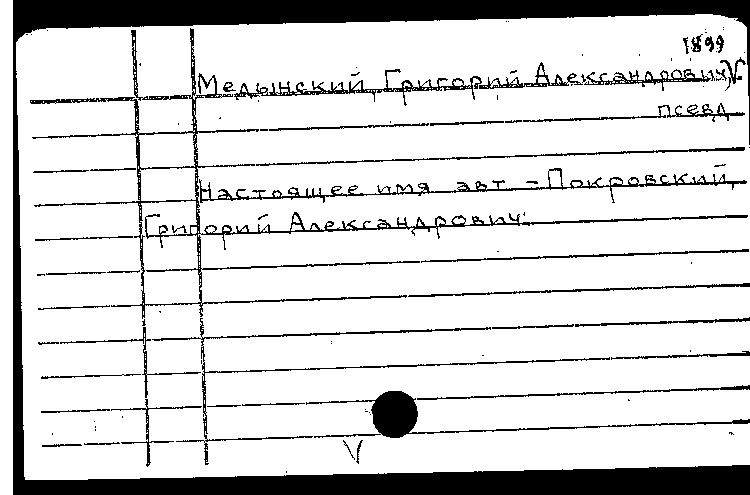 1899
Медынский, Григорий Александрович,
псевд
Настоящее имя авт - Покровский,
Григорий Александрович.